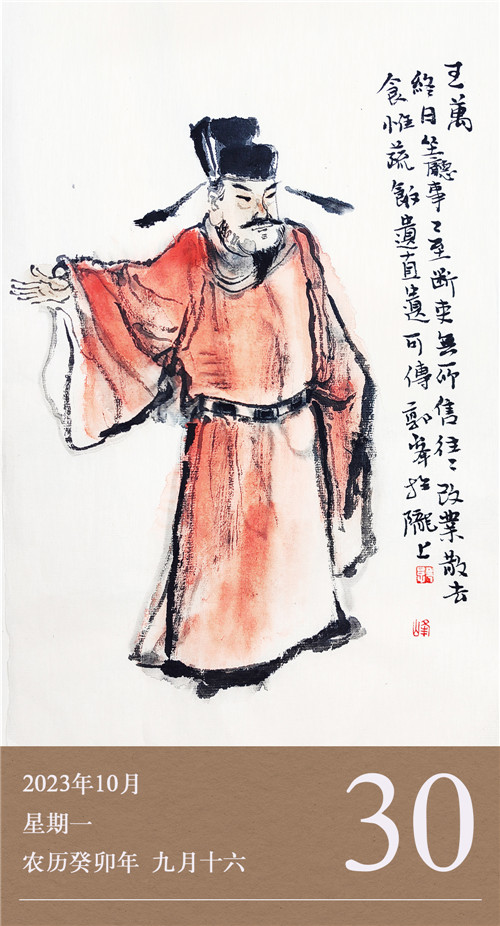 王萬
終日坐廳事〻至斷吏無所信往〻改業散去
食惟蔬飯遺直遺可傳 峰於隴上
峰
2023年10月
星期一
农历癸卯年 九月十六
30